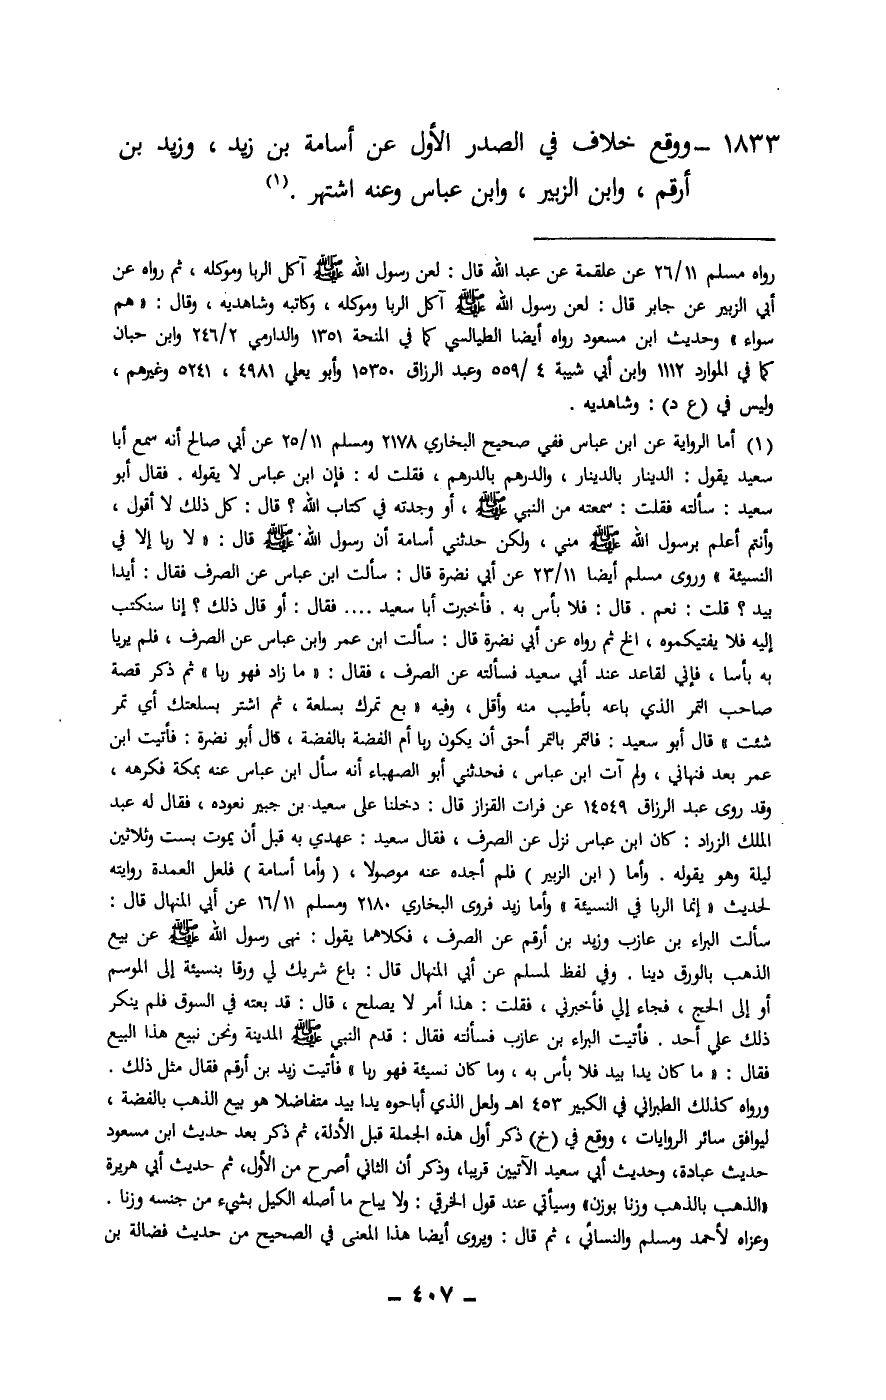 ١٨٣٣ – ووقع خلاف في الصدر الأول عن أسامة بن زيد ، وزيد بن
أرقم ، وابن الزبير ، وابن عباس وعنه اشتهر .(١)
رواه مسلم ٢٦/١١ عن علقمة عن عبد الله قال : لعن رسول الله ﷺ آكل الربا وموكله ، ثم رواه عن
أبي الزبير عن جابر قال : لعن رسول الله ﷺ آكل الربا وموكله ، وكاتبه وشاهديه ، وقال : « هم
سواء » وحديث ابن مسعود رواه أيضا الطيالسي كما في المنحة ١٣٥١ والدارمي ٢٤٦/٢ وابن حبان
كما في الموارد ١١١٢ وابن أبي شيبة ٤ /٥٥٩ وعبد الرزاق ١٥٣٥٠ وأبو يعلي ٤٩٨١ ، ٥٢٤١ وغيرهم ،
وليس في (ع د) : وشاهديه .
(١) أما الرواية عن ابن عباس ففي صحيح البخاري ٢١٧٨ ومسلم ٢٥/١١ عن أبي صالح أنه سمع أبا
سعيد يقول : الدينار بالدينار ، والدرهم بالدرهم ، فقلت له : فإن ابن عباس لا يقوله . فقال أبو
سعيد : سألته فقلت : سمعته من النبي ﷺ ، أو وجدته في كتاب الله ؟ قال : كل ذلك لا أقول ،
وأنتم أعلم برسول الله ﷺ مني ، ولكن حدثني أسامة أن رسول الله ﷺ قال : « لا ربا إلا في
النسيئة » وروى مسلم أيضا ٢٣/١١ عن أبي نضرة قال : سألت ابن عباس عن الصرف فقال : أيدا
بيد ؟ قلت : نعم . قال : فلا بأس به . فأخبرت أبا سعيد .... فقال : أو قال ذلك ؟ إنا سنكتب
إليه فلا يفتيكموه ، الخ ثم رواه عن أبي نضرة قال : سألت ابن عمر وابن عباس عن الصرف ، فلم يريا
به بأسا ، فإني لقاعد عند أبي سعيد فسألته عن الصرف ، فقال : « ما زاد فهو ربا » ثم ذكر قصة
صاحب التمر الذي باعه بأطيب منه وأقل ، وفيه « بع تمرك بسلعة ، ثم اشتر بسلعتك أي تمر
شئت » قال أبو سعيد : فالتمر بالتمر أحق أن يكون ربا أم الفضة بالفضة ، قال أبو نضرة : فأتيت ابن
عمر بعد فنهاني ، ولم آت ابن عباس ، فحدثني أبو الصهباء أنه سأل ابن عباس عنه بمكة فكرهه ،
وقد روى عبد الرزاق ١٤٥٤٩ عن فرات القزاز قال : دخلنا على سعيد بن جبير نعوده ، فقال له عبد
الملك الزراد : كان ابن عباس نزل عن الصرف ، فقال سعيد : عهدي به قبل أن يموت بست وثلاثين
ليلة وهو يقوله . وأما ( ابن الزبير ) فلم أجده عنه موصولا ، ( وأما أسامة ) فلعل العمدة روايته
لحديث « إنما الربا في النسيئة » وأما زيد فروى البخاري ٢١٨٠ ومسلم ١٦/١١ عن أبي المنهال قال :
سألت البراء بن عازب وزيد بن أرقم عن الصرف ، فكلاهما يقول : نهى رسول الله ﷺ عن بيع
الذهب بالورق دينا . وفي لفظ لمسلم عن أبي المنهال قال : باع شريك لي ورقا بنسيئة إلى الموسم
أو إلى الحج ، فجاء إلي فأخبرني ، فقلت : هذا أمر لا يصلح ، قال : قد بعته في السوق فلم ينكر
ذلك علي أحد . فأتيت البراء بن عازب فسألته فقال : قدم النبي ﷺ المدينة ونحن نبيع هذا البيع
فقال : « ما كان يدا بيد فلا بأس به ، وما كان نسيئة فهو ربا » فأتيت زيد بن أرقم فقال مثل ذلك .
ورواه كذلك الطبراني في الكبير ٤٥٣ اهـ ولعل الذي أباحوه يدا بيد متفاضلا هو بيع الذهب بالفضة ،
ليوافق سائر الروايات ، ووقع في (خ) ذكر أول هذه الجملة قبل الأدلة، ثم ذكر بعد حديث ابن مسعود
حديث عبادة، وحديث أبي سعيد الآتيين قريبا، وذكر أن الثاني أصرح من الأول، ثم حديث أبي هريرة
«الذهب بالذهب وزنا بوزن» وسيأتي عند قول الخرقي : ولا يباح ما أصله الكيل بشيء من جنسه وزنا .
وعزاه لأحمد ومسلم والنسائي ، ثم قال : ويروى أيضا هذا المعنى في الصحيح من حديث فضالة بن
– ٤٠٧ –